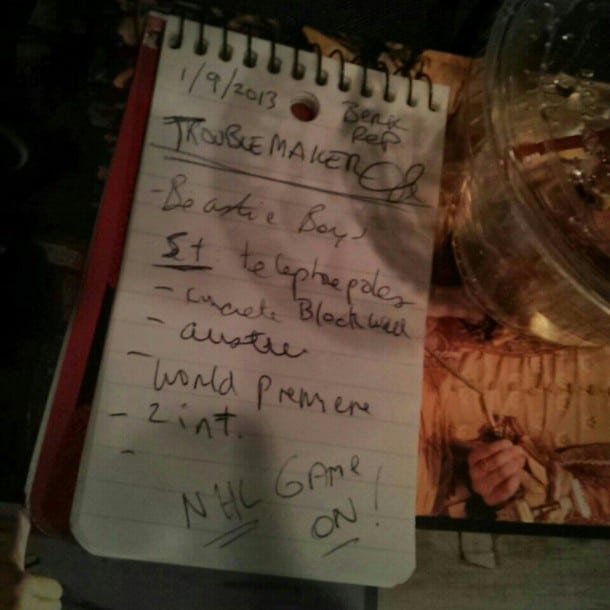 1/9/2013
Berk
Rep
TROUBLEMAKER
- Beastie Boys
St telephone poles
- concrete Block wall
- austere
- World Premiere
- 2 int.
-
NHL GAME
ON!